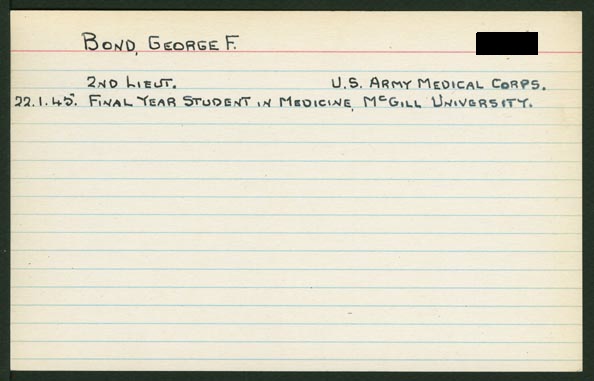 BOND, GEORGE F.
2ND LIEUT. U.S. ARMY MEDICAL CORPS.
22.1.45. FINAL YEAR STUDENT IN MEDICINE, McGILL UNIVERSITY.